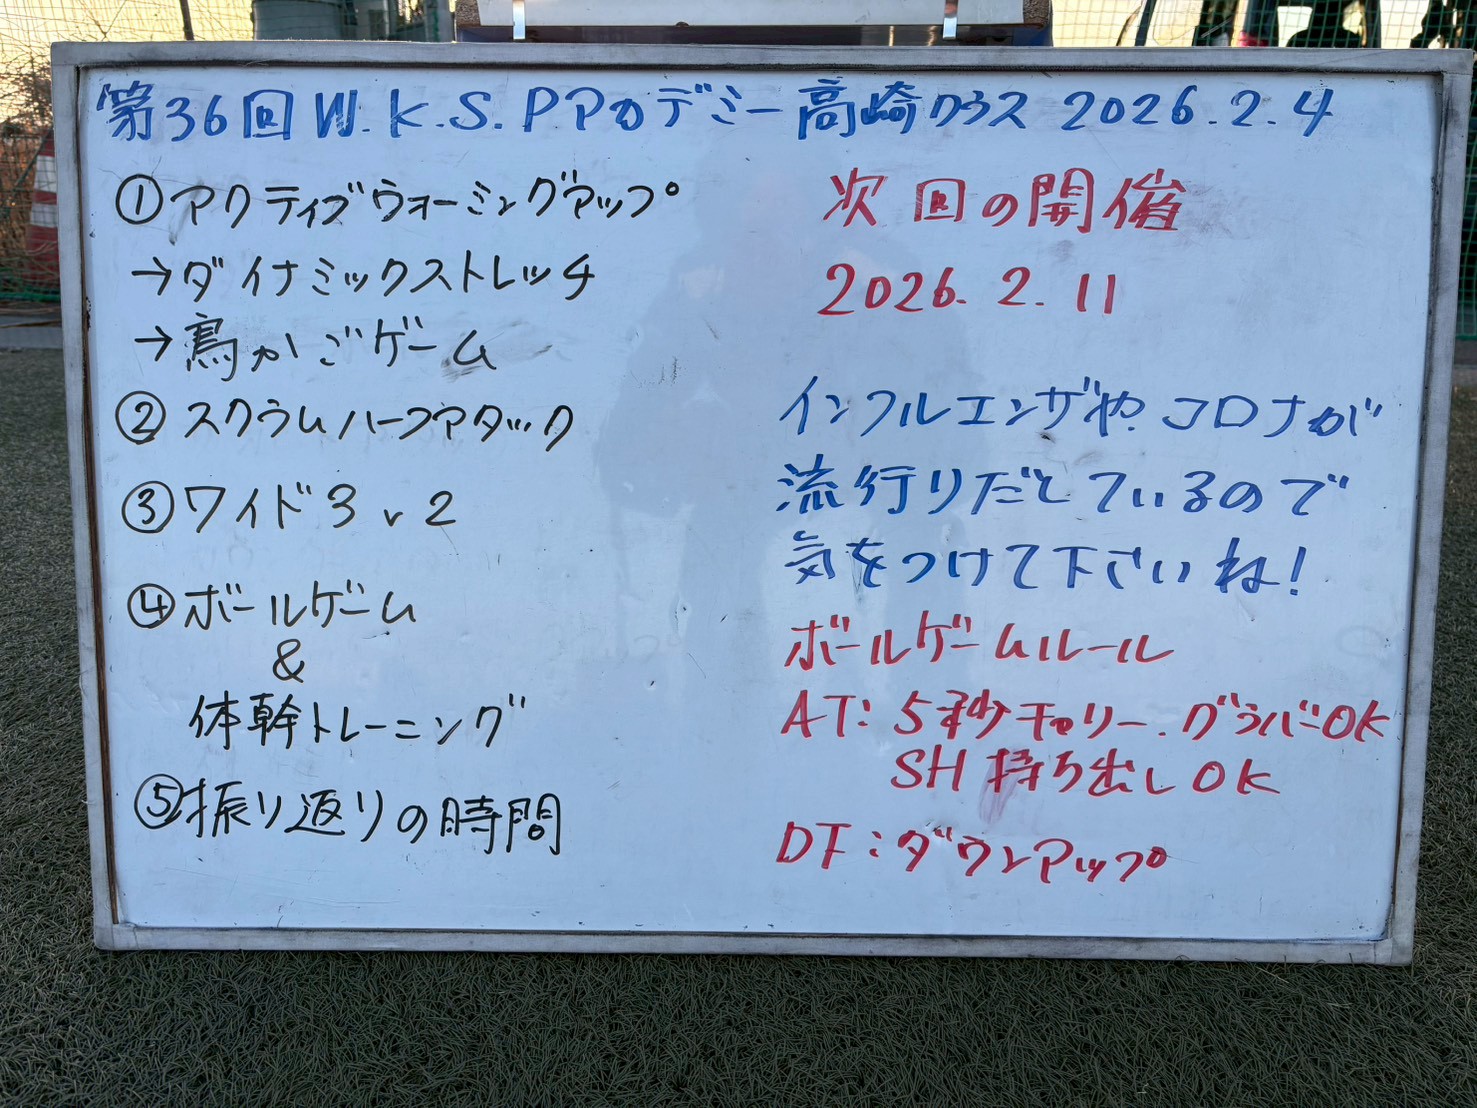 第36回 W.K.S.Pアカデミー高崎クラス 2026.2.4
①アクティブウォーミングアップ
→ダイナミックストレッチ
→鳥かごゲーム
②スクラムハーフアタック
③ワイド3v2
④ボールゲーム
&
体幹トレーニング
⑤振り返りの時間
次回の開催
2026.2.11
インフルエンザやコロナが
流行りだとているので
気をつけて下さいね!
ボールゲームルール
AT:5秒キャリー.グラバーOK
SH持ち出しOK
DF:ダウンアップ